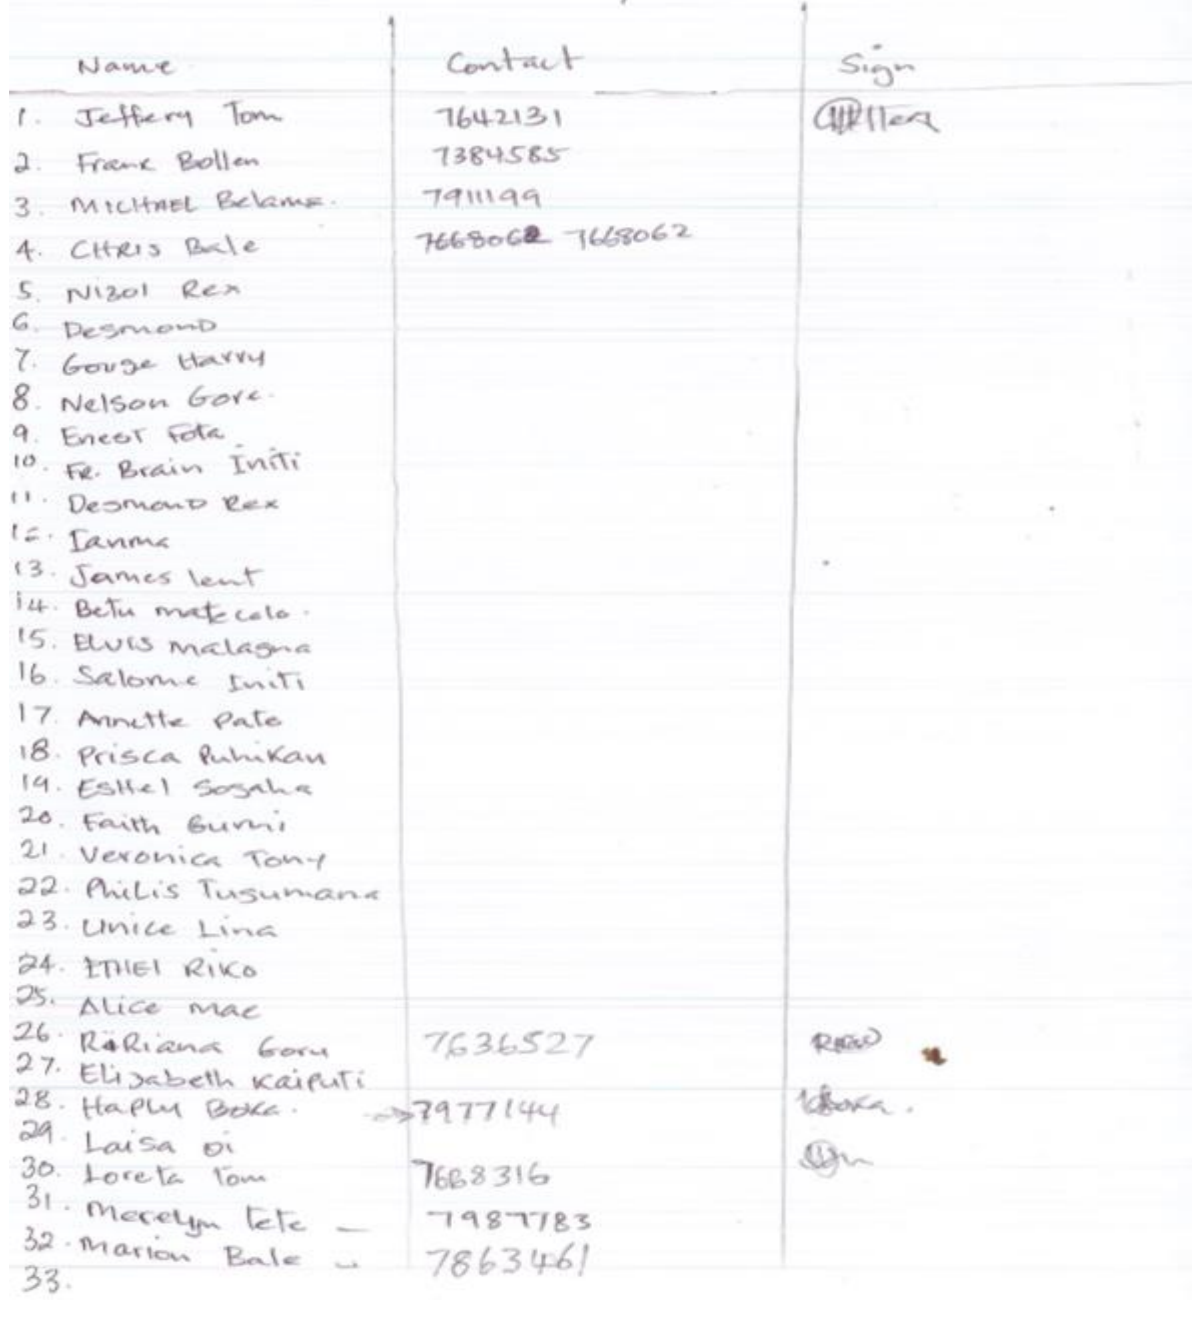 Name Contact Sign
1. Jeffery Tom 7642131
2. Frank Bollen 7384585
3. MICHAEL Belama. 7911199
4. CHRIS Bale 7668062 7668062
5. Nizol Rex
6. Desmond
7. Gouge Harry
8. Nelson Gore.
9. Eneot Fota
10. FR. Brain Initi
11. Desmond Rex
12. Ianma
13. James lent
14. Betu matecalo.
15. ELVIS Malagna
16. Salome Initi
17. Annette Pato
18. Prisca Puhikan
19. Esthel Sogaha
20. Faith Gumi
21. Veronica Tony
22. Philis Tusumana
23. Unice Lina
24. ITHEl RIKO
25. Alice Mae
26. RaRiana Goru 7636527
27. Elizabeth Kaiputi
28. Haplu Boka. 7977144 Boka.
29. Laisa Oi
30. Loreta Tom 7668316
31. Merelyn tete – 7987783
32. Marion Bale – 7863461
33.